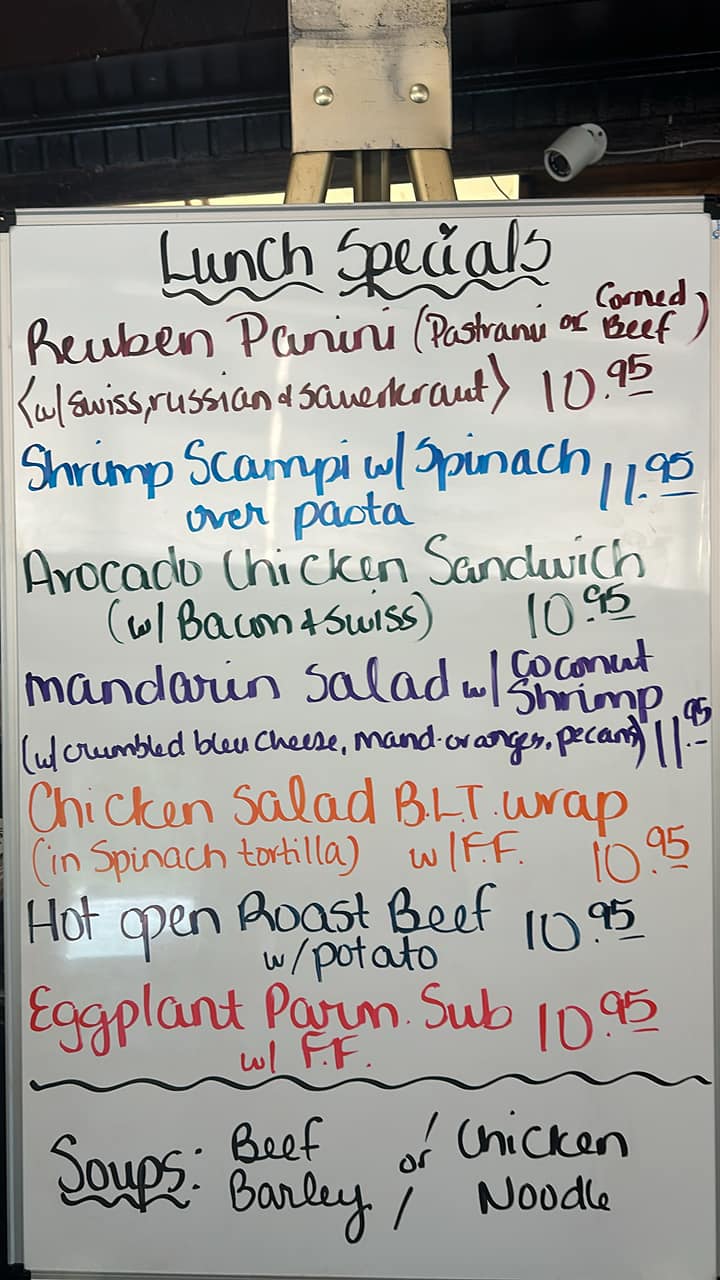 Lunch Specials
Reuben Panini (Pastrami or Corned Beef)
(w/ swiss, russian & sauerkraut) 10.95
Shrimp Scampi w/ Spinach 11.95
over pasta
Avocado Chicken Sandwich
(w/ Bacon & Swiss) 10.95
mandarin salad w/ Coconut Shrimp
(w/ crumbled bleu cheese, mand. oranges, pecans) 11.95
Chicken Salad B.L.T. wrap
(in Spinach tortilla) w/ F.F. 10.95
Hot open Roast Beef 10.95
w/ potato
Eggplant Parm. Sub 10.95
w/ F.F.
Soups: Beef Barley / or / Chicken Noodle